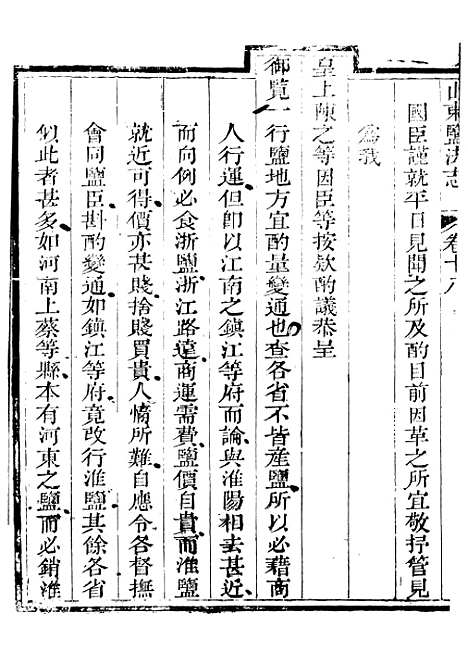 山東鹽法志 卷十八
國臣謹就平日見聞之所及酌目前因革之所宜敬抒管見
爲我
皇上陳之等因臣等按欵酌議恭呈
御覽一行鹽地方宜酌量變通也查各省不皆産鹽所以必藉商
人行運但卽以江南之鎮江等府而論與淮陽相去甚近
而向例必食浙鹽浙江路遠商運需費鹽價自貴而淮鹽
就近可得價亦甚賤捨賤買貴人情所難自應令各督撫
會同鹽臣斟酌變通如鎮江等府竟改行淮鹽其餘各省
似此者甚多如河南上蔡等縣本有河東之鹽而必銷淮